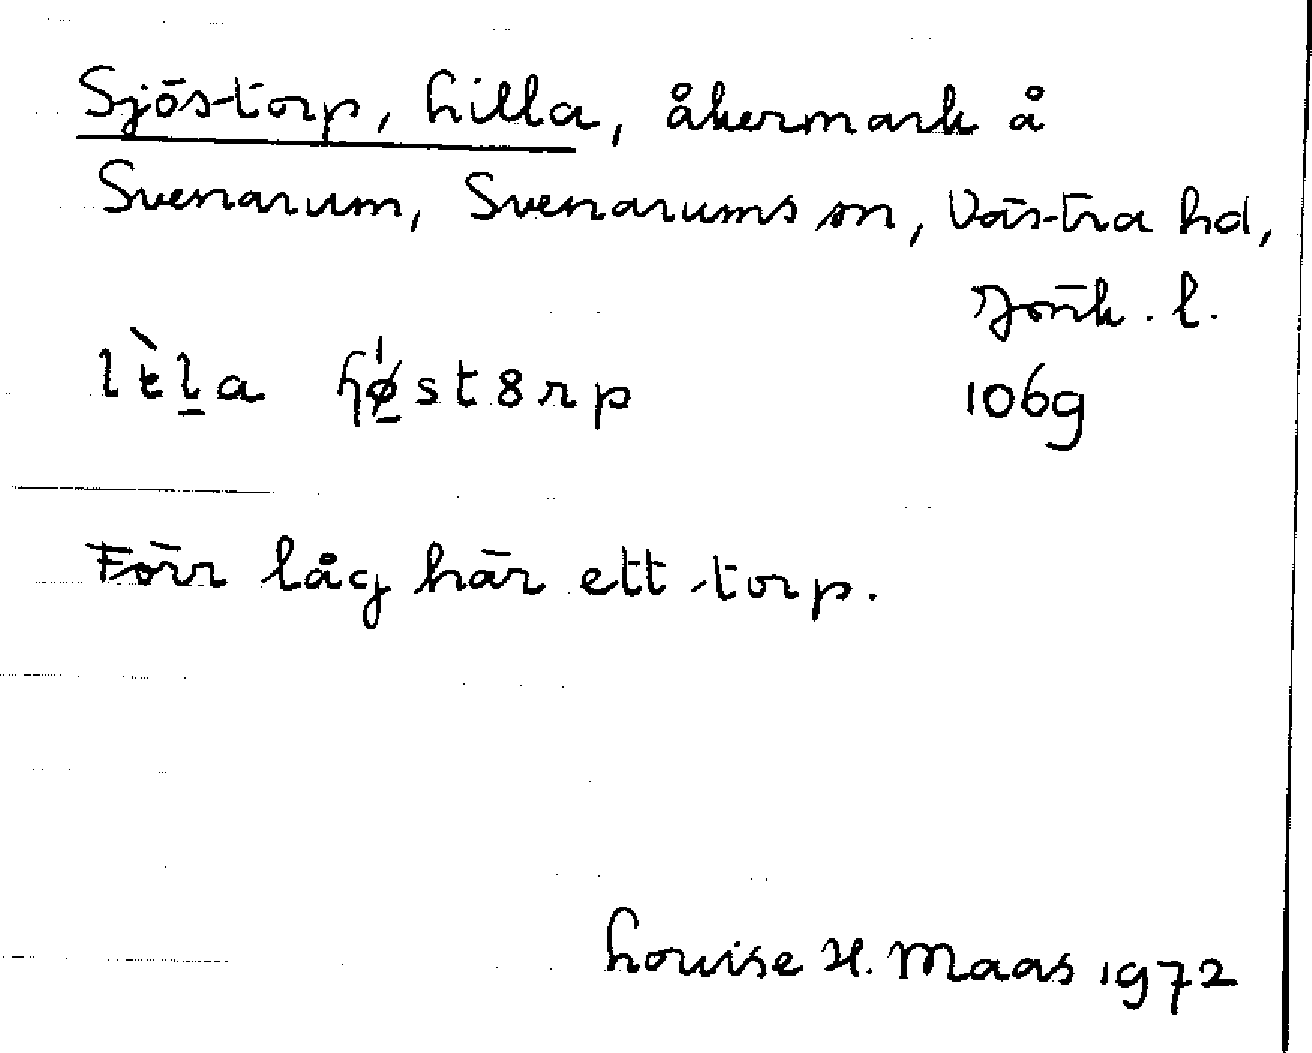 Sjöstorp, Lilla, åkermark å
Svenarum, Svenarums sn, Västra hd,
Jönk. l.
lɛ̀la ɧǿst8rp 1069
Förr låg här ett torp.
Louise H. Maas 1972